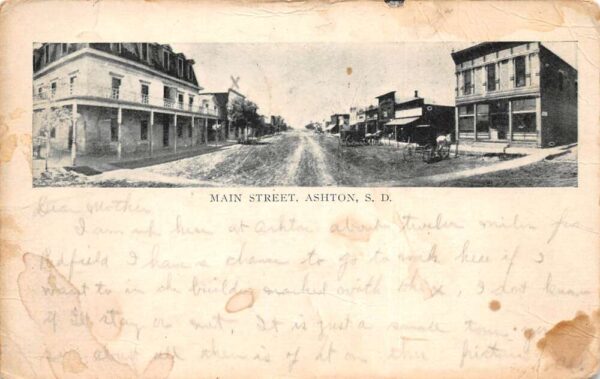 MAIN STREET, ASHTON, S. D.
Dear Mother
I am here at Ashton about twelve miles
Redfield I have a chance to go to work here if I
want to in the building marked with the X, I dont know
if Ill stay or not, It is just a small town
all there is of it on this picture